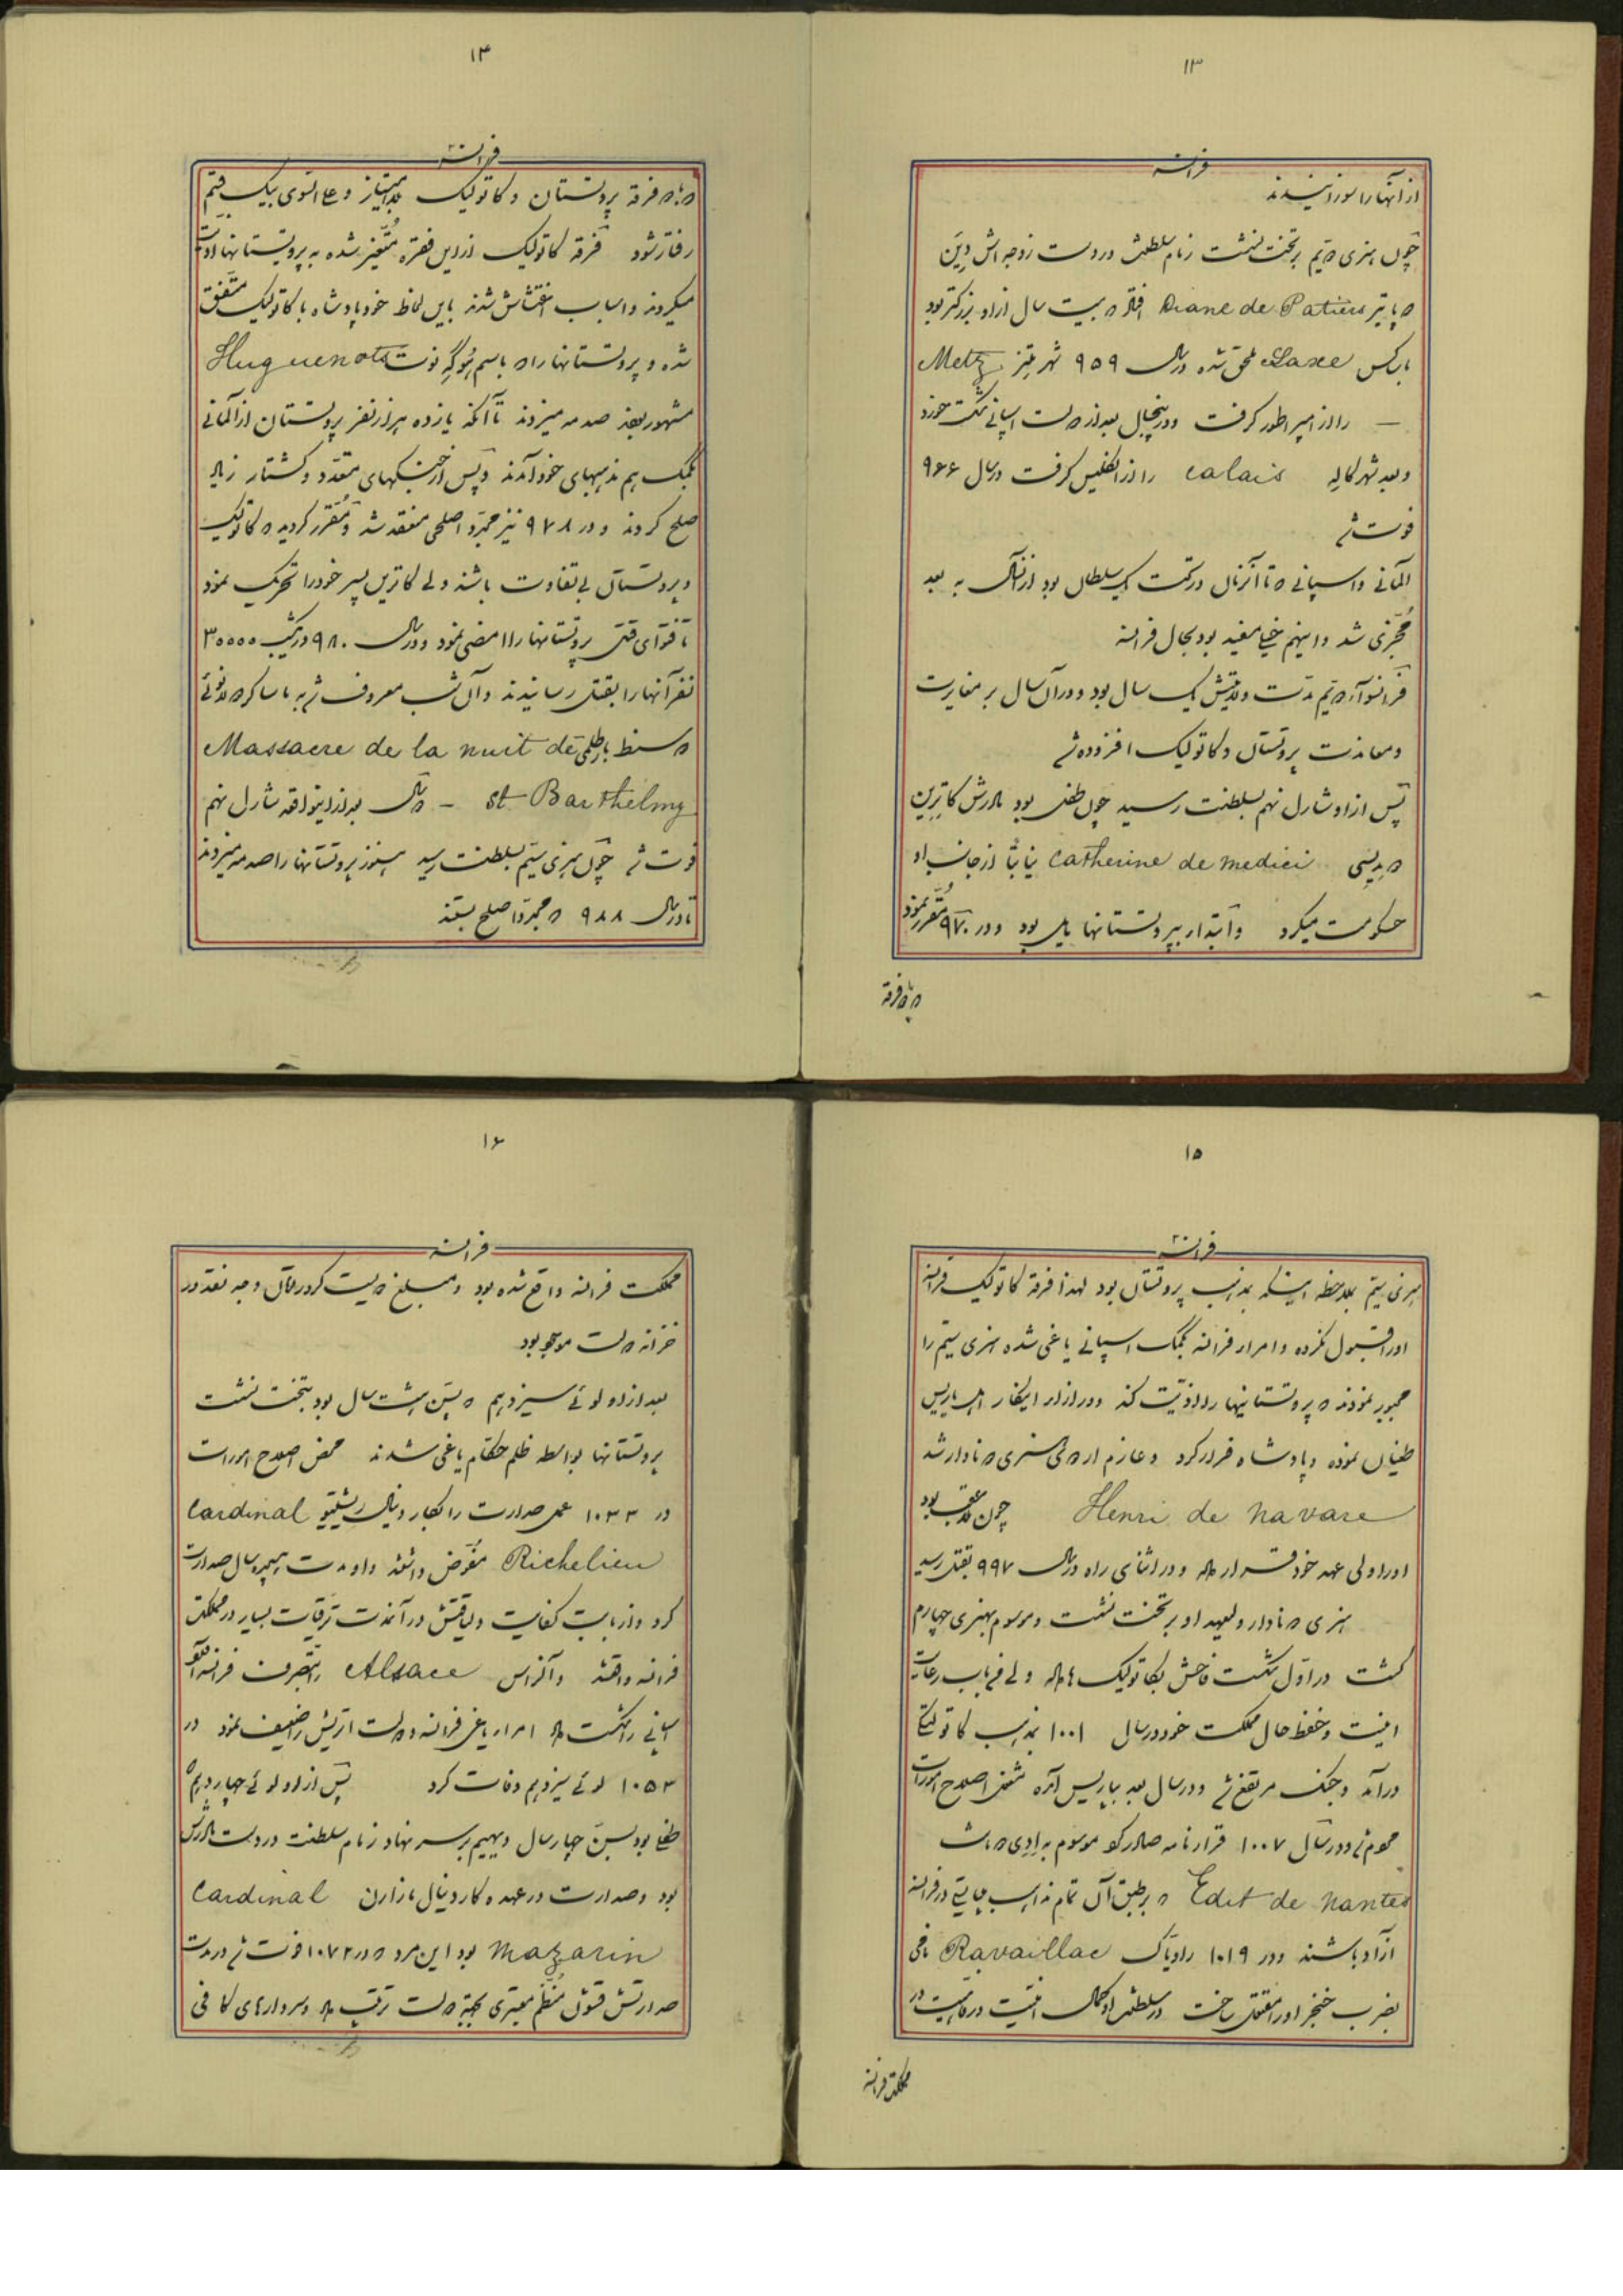 ۱۳
فرانسه
از آنها را سوزانیدند
چون هنری دویم بر تخت نشست زمام سلطنت در دست زوجه اش دین
دو پاتیر Diane de Patiers افتاد که بیست سال از او بزرگتر بود
با رکس Saxe ملحق شده در سال ۹۵۹ شهر متز Metz
— را از امپراطور گرفت و در پنجسال بعد از دولت اسپانی شکست خورد
و بعد شهر کاله calais را از انگلیس گرفت در سال ۹۶۶
فوت شد
آلمانی و اسپانی که تا آنزمان در تحت یک سلطان بود از آنسال به بعد
مجزی شد و اینهم خیلی مفید بود بحال فرانسه
فرانسوآی دویم مدت ولایتش یک سال بود و در آن سال بر مغایرت
و معاندت پروتستان و کاتولیک افزوده شد
پس از او شارل نهم بسلطنت رسید چون طفل بود مادرش کاترین
دو مدیسی Catherine de medici نیابتاً از جانب او
حکومت میکرد و ابتدا به پروتستانها مایل بود و در ۹۷۰ مقرر نمود
که با دو فرقه
۱۴
فرانسه
که با دو فرقه پروتستان و کاتولیک بلا امتیاز و علی السوی بیک قسم
رفتار شود فرقه کاتولیک از این فقره متغیر شده به پروتستانها اذیت
میکردند و اسباب اغتشاش شدند باین لحاظ خود پادشاه با کاتولیک متفق
شده و پروتستانها را که باسم هوگه نوت Huguenots
مشهور بودند صدمه میزدند تا آنکه یازده هزار نفر پروتستان از آلمانی
بکمک هم مذهبهای خود آمدند و پس از جنگهای متعدد و کشتار زیاد
صلح کردند و در ۹۷۸ نیز مجدداً صلحی منعقد شد و مقرر گردید که کاتولیک
و پروتستان بی تفاوت باشند ولی کاترین پسر خود را تحریک نمود
تا فتوای قتل پروتستانها را امضی نمود و در سال ۹۸۰ در یکشب ۳۰۰۰۰
نفر آنها را بقتل رسانیدند و آن شب معروف شد به ماساکر دو لا نوئی
دو سنط بارطلمی Massacre de la nuit de
st Barthelmy — دو سال بعد از اینواقعه شارل نهم
فوت شد چون هنری سیم بسلطنت رسید هنوز پروتستانها را صدمه میزدند
تا در سال ۹۸۸ که مجدداً صلح بستند
۱۵
فرانسه
هنری سیم بملاحظه اینکه بمذهب پروتستان بود لهذا فرقه کاتولیک فرانسه
او را قبول نکرده و امرای فرانسه بکمک اسپانی یاغی شده هنری سیم را
مجبور نمودند که پروتستانیها را اذیت کند و در ازای اینکار اهل پاریس
طغیان نموده و پادشاه فرار کرد و عازم اردوی هنری دو ناوار شد
Henri de navare چون بلاعقب بود
او را ولی عهد خود قرار داد و در اثنای راه در سال ۹۹۷ بقتل رسید
هنری دو ناوار ولیعهد او بر تخت نشست و موسوم بهنری چهارم
گشت در اول شکست فاحش بکاتولیک ها داد ولی من باب رعایت
امنیت و حفظ حال مملکت خود در سال ۱۰۰۱ بمذهب کاتولیکی
درآمد و جنگ مرتفع شد و در سال بعد بپاریس آمده مشغول اصلاح امورات
عموم شد و در سال ۱۰۰۷ قرارنامه صادر کرد موسوم به ادی دو نانت
Edit de nantes که بر طبق آن تمام مذاهب عیسائیتی در فرانسه
آزاد باشند و در ۱۰۱۹ راویاک Ravaillac نامی
بضرب خنجر او را مقتول ساخت در سلطنت او کمال امنیت و رفاهیت در
مملکت فرانسه
۱۶
فرانسه
مملکت فرانسه واقع شده بود و مبلغ دویست کرور تومان وجه نقد در
خزانه دولت موجود بود
بعد از او لوئی سیزدهم که بسن هشت سال بود بتخت نشست
پروتستانها بواسطه ظلم حکام یاغی شدند محض اصلاح امورات
در ۱۰۳۳ عمل صدارت را بکاردینال ریشلیو Cardinal
Richelieu مفوض داشتند و او مدت هیجده سال صدارت
کرد و از بابت کفایت و لیاقتش در آنمدت ترقیات بسیار در مملکت
فرانسه واقع شد و آلزاس Alsace را بتصرف فرانسه درآورد
اسپانی را شکست داد امرای یاغی فرانسه و دولت اتریش را ضعیف نمود در
۱۰۵۳ لوئی سیزدهم وفات کرد پس از او لوئی چهاردهم که
طفلی بود بسن چهار سال دیهیم بر سر نهاد زمام سلطنت در دست مادرش
بود و صدارت در عهده کاردینال مازارن Cardinal
mazarin بود این مرد که در ۱۰۷۲ فوت شد در مدت
صدارتش قشون منظم معتبری بجهة دولت ترتیب داد و سردارهای کافی